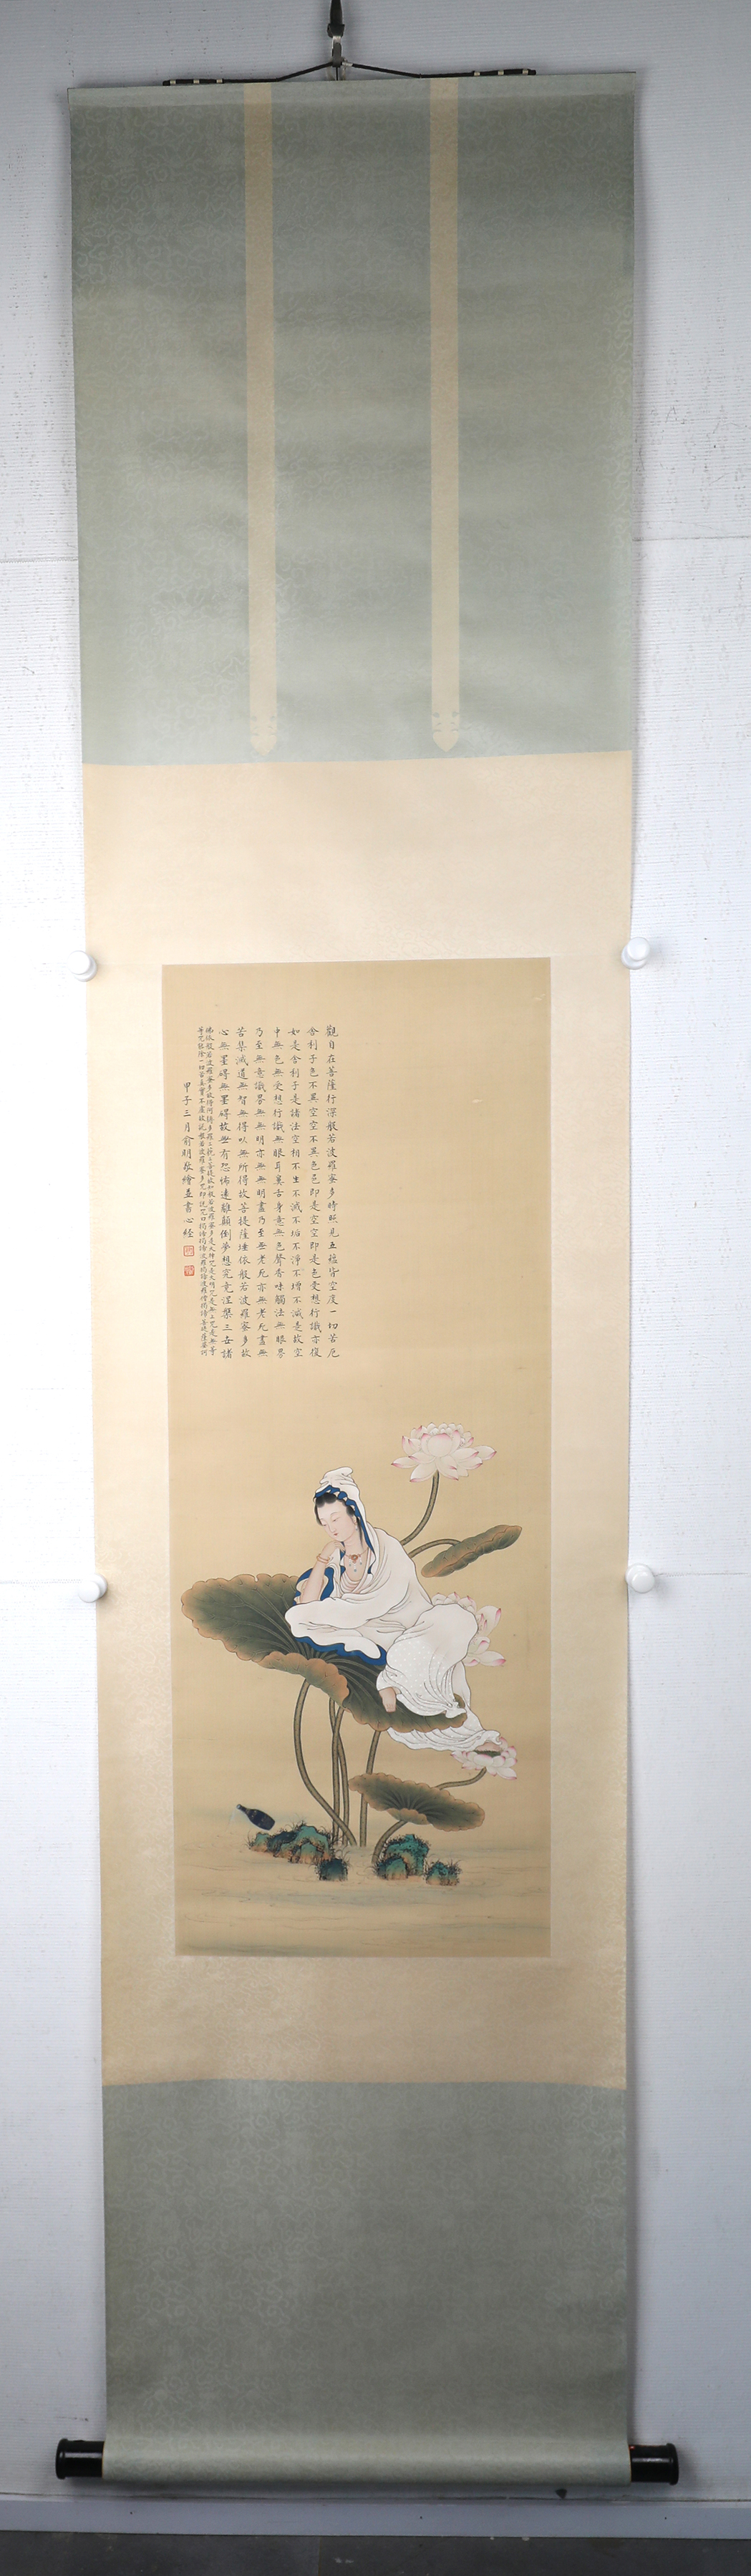 觀自在菩薩行深般若波羅蜜多時照見五蘊皆空度一切苦厄
舍利子色不異空空不異色色即是空空即是色受想行識亦復
如是舍利子是諸法空相不生不滅不垢不淨不增不減是故空
中無色無受想行識無眼耳鼻舌身意無色聲香味觸法無眼界
乃至無意識界無無明亦無無明盡乃至無老死亦無老死盡無
苦集滅道無智無得以無所得故菩提薩埵依般若波羅蜜多故
心無罣礙無罣礙故無有恐怖遠離顛倒夢想究竟涅槃三世諸
佛依般若波羅蜜多故得阿耨多羅三藐三菩提故知般若波羅蜜多是大神咒是大明咒是無上咒是無等
等咒能除一切苦真實不虛故說般若波羅蜜多咒即說咒曰揭諦揭諦波羅揭諦波羅僧揭諦菩提薩婆訶
甲子三月俞明敬繪並書心經